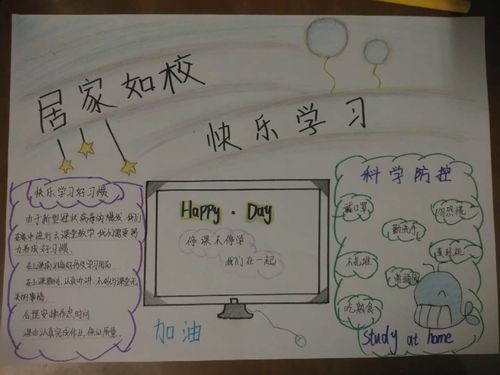 居家如校
快乐学习
快乐学习好习惯
由于新型冠状病毒的爆发,我们
在家中进行云课堂教学,我们需要努
力养成好习惯.
在上课前准备好学习用品.
在上课期间,认真听讲,不做与课堂无
关的事情.
合理安排作息时间
课后认真完成作业,保证质量.
Happy · Day
停课不停学
我们在一起
加油
科学防控
戴口罩
勤洗手
不扎堆
吃熟食
study at home